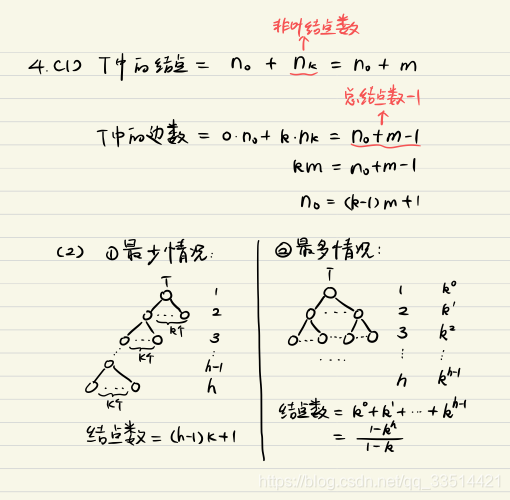 非叶结点数
4.(1) T中的结点 = n₀ + nₖ = n₀ + m
总结点数-1
T中的边数 = 0·n₀ + k·nₖ = n₀+m-1
km = n₀+m-1
n₀ = (k-1)m+1
(2) ①最少情况:
T
1
2
k个
3
k个
h-1
h
k个
结点数 = (h-1)k+1
②最多情况:
T
1 k⁰
2 k¹
3 k²
⋮ ⋮
h kʰ⁻¹
结点数 = k⁰+k¹+…+kʰ⁻¹
= (1-kʰ)/(1-k)
https://blog.csdn.net/qq_33514421